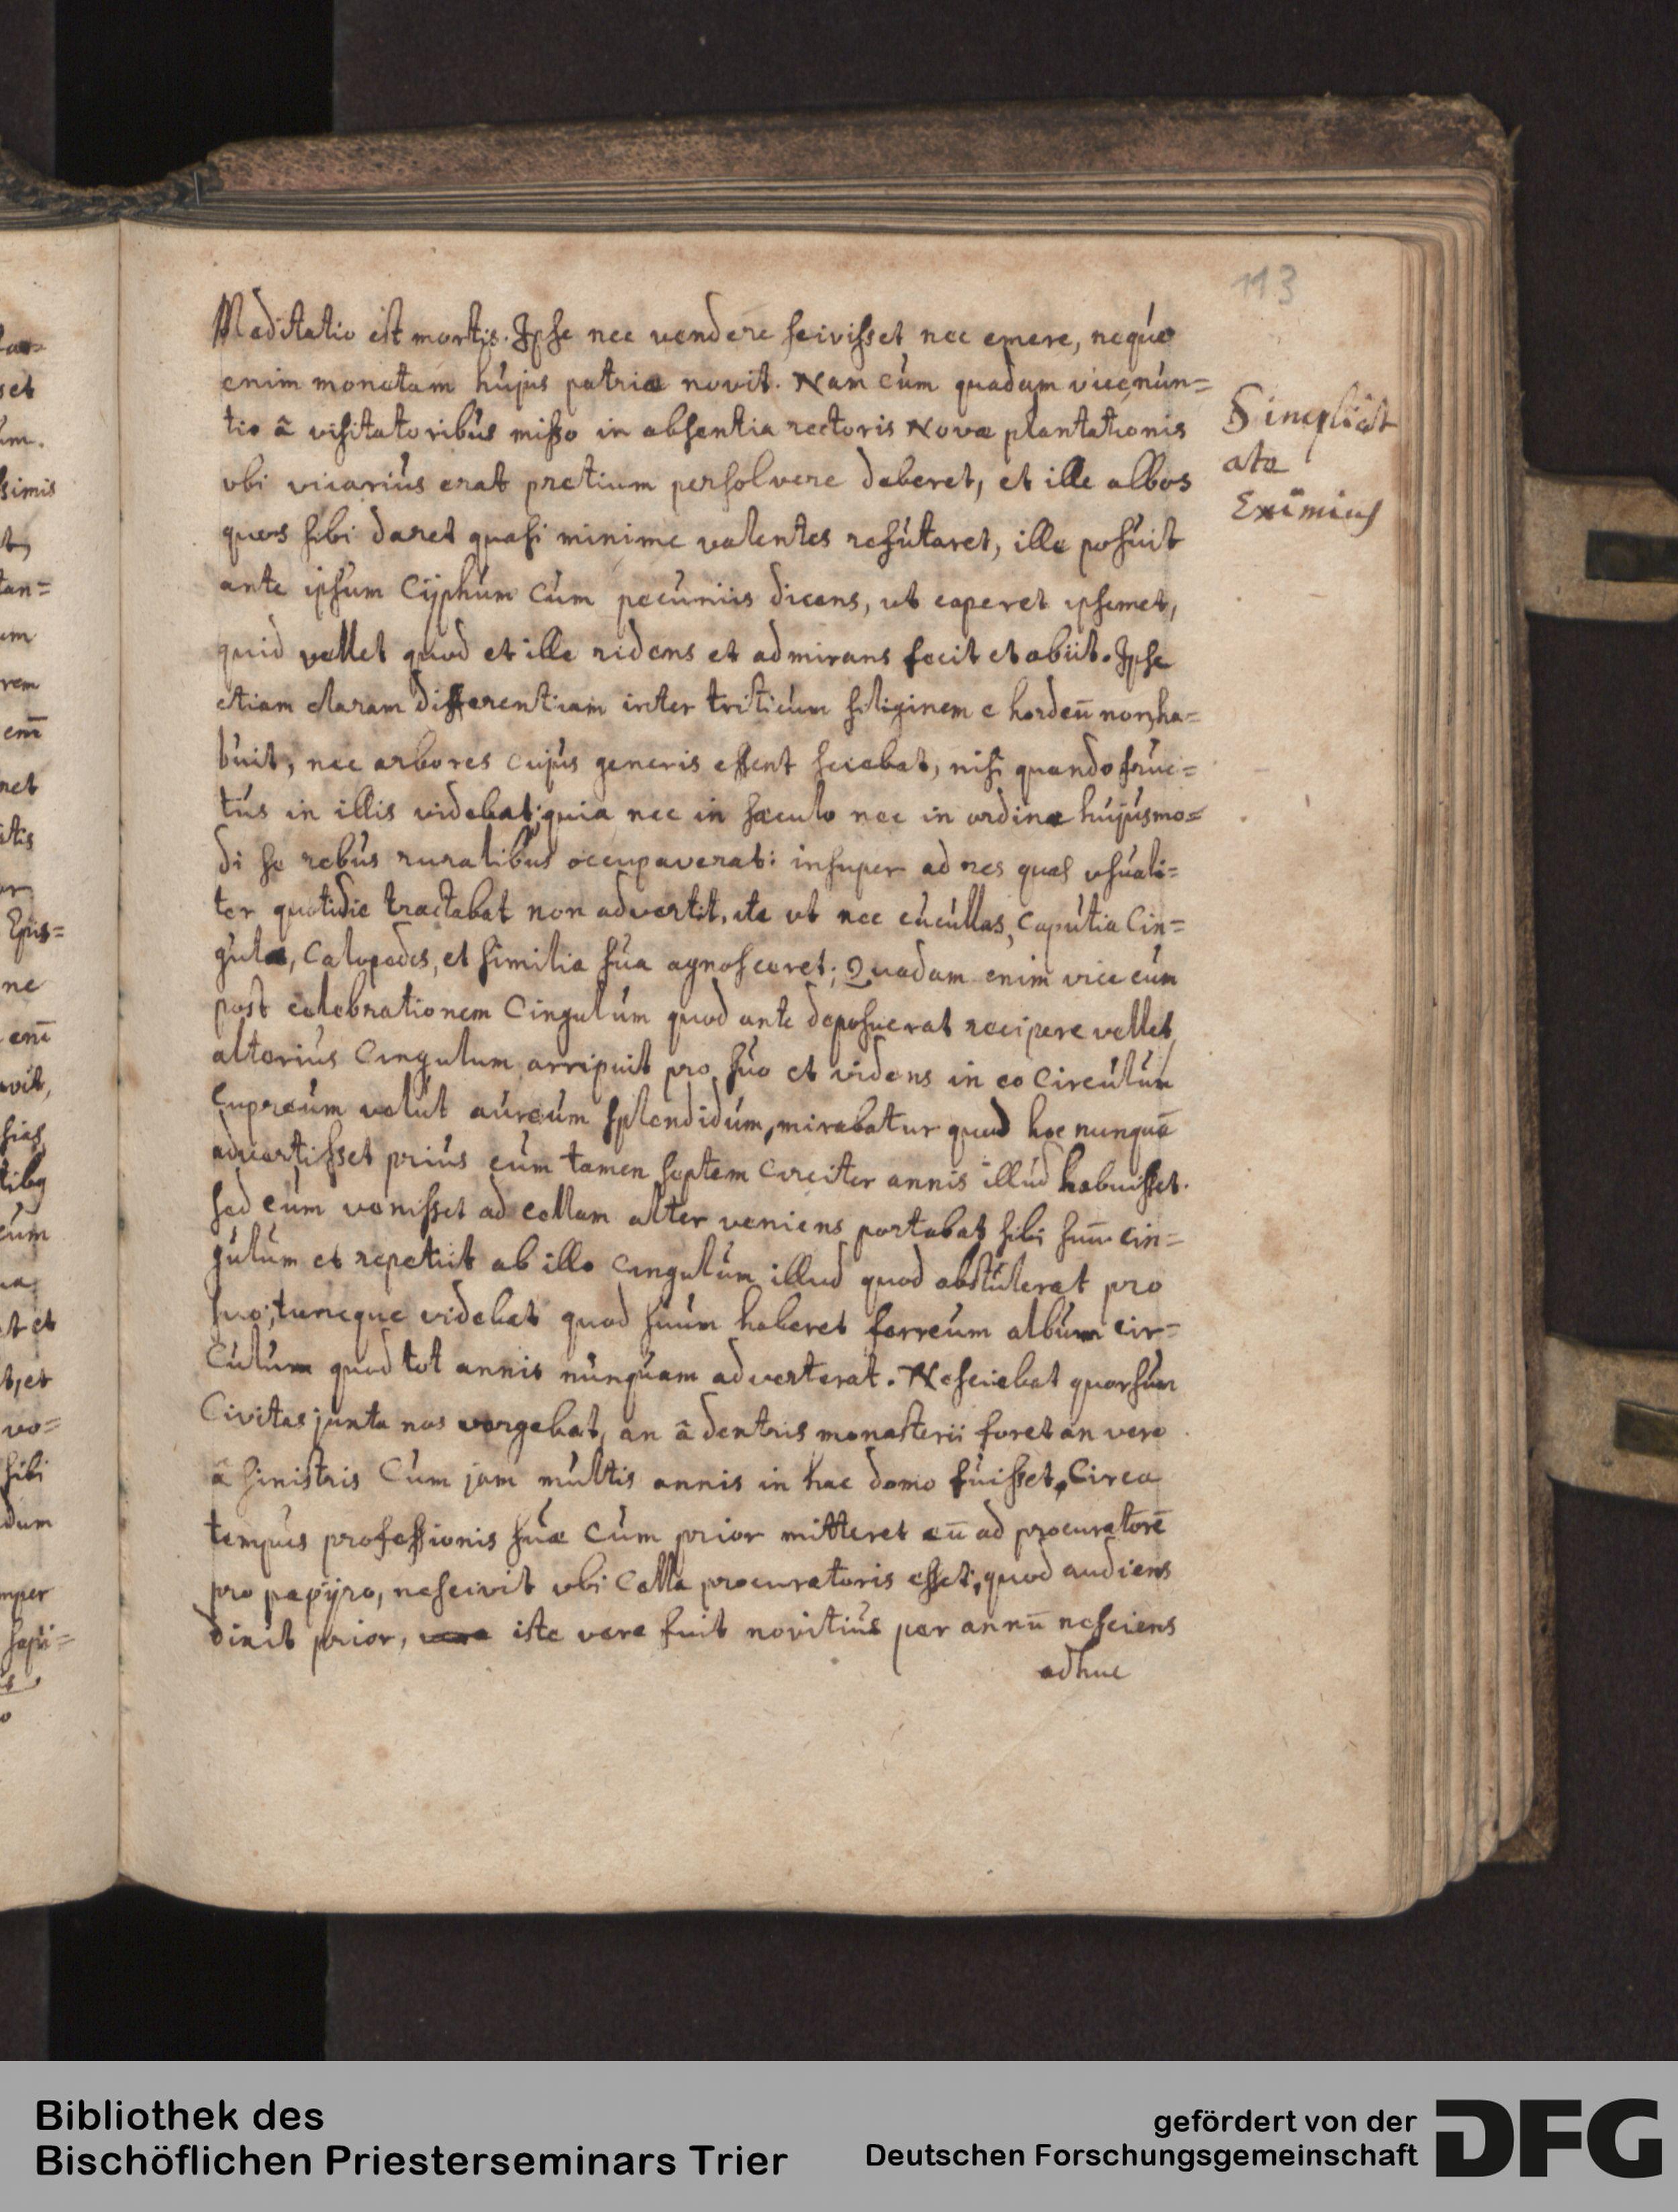 113
Meditatio est mortis. Ipse nec vendere scivisset nec emere, neque
enim monetam hujus patriæ novit. Nam cùm quadam vice nún=
tio â visitatoribus misso in absentia rectoris Novæ plantationis
vbi vicariús erat pretium persolvere deberet, et ille albos
quos sibi daret quasi minime valentes refútaret, ille posúit
ante ipsum Cÿphúm Cúm pecúniis dicens, ut caperet ipsemet,
quid vellet quod et ille ridens et admirans fecit et abiit. Ipse
etiam claram differentiam inter triticúm siliginem e hordeū non ha=
búit, nec arbores cujús generis essent sciebat, nisi quando frúc=
tús in illis videbat; quia nec in sæculo nec in ordine hujúsmo=
di se rebús ruralibús occupaverat: insuper ad res quas vsúali=
ter quotidie tractabat non advertit, ita vt nec cúcúllas, Capútia Cin=
gúla, Calopedes, et similia súa agnosceret; Quadam enim vice cúm
post celebrationem Cingulúm quod ante deposuerat recipere vellet,
alteriús Cingulum arripuit pro súo et videns in eo Circúlúm
Cupreúm velút aúreúm splendidúm, mirabatur quod hoc nunquā
advertisset priús cúm tamen septem Circiter annis illúd habuisset.
sed cúm venisset ad cellam alter veniens portabat sibi suū cin=
gúlúm et repetiit ab illo Cingulúm illud quod abstúlerat pro
suo; tuncque videbat quod súúm haberet ferreum albúm cir=
Cúlúm quod tot annis núnquam adverterat. Nesciebat quorsúm
Civitas juxta nos vergebat, an â dextris monasterii foret an vero
â sinistris Cúm jam múltis annis in hac domo fúisset, Circa
tempus professionis súæ Cúm prior mitteret eū ad procuratorē
pro papÿro, nescivit vbi Cella procuratoris esset, quod audiens
dixit prior, vere iste vere fuit novitiús per annū nesciens
adhuc
Simplicit
ate
Eximiús
Bibliothek des
Bischöflichen Priesterseminars Trier
gefördert von der
Deutschen Forschungsgemeinschaft
DFG